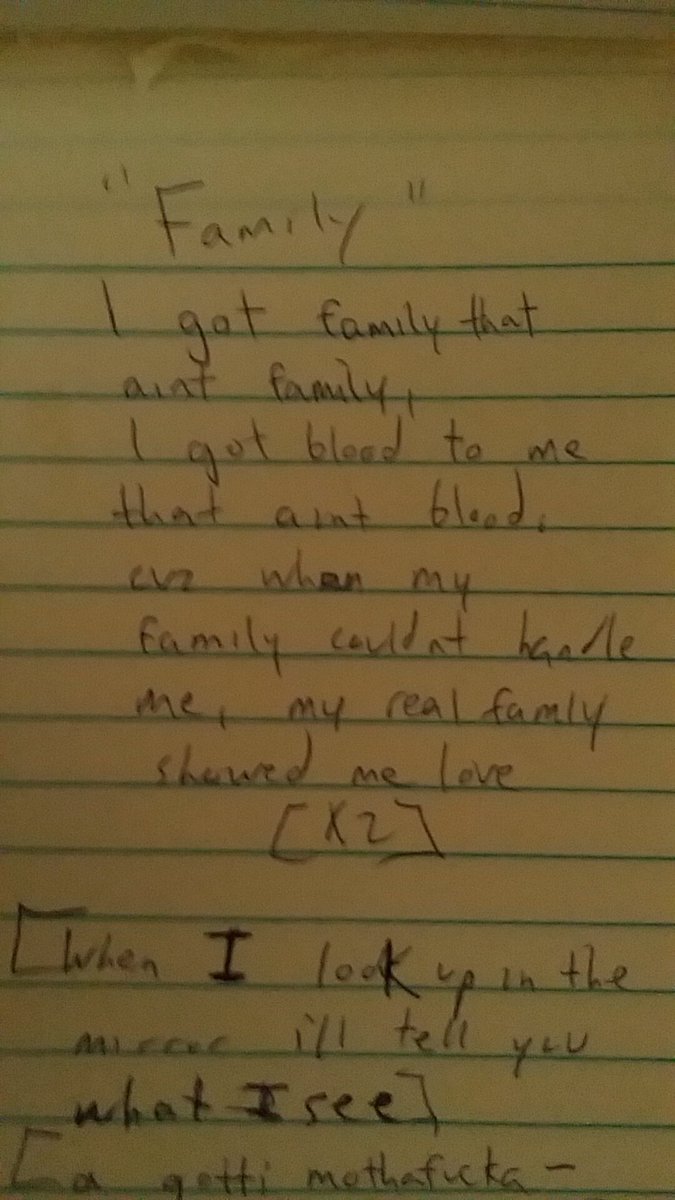 "Family"
I got family that
aint family,
I got blood to me
that aint blood,
cuz when my
family couldnt handle
me, my real famly
showed me love
[X2]
[When I look up in the
mirror i'll tell you
what I see]
[a gotti mothafucka -